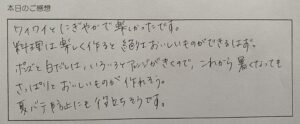 本日のご感想
ワイワイとにぎやかで楽しかったです。
料理は楽しく作ると もおいしいものができるはず。
ポン酢と白だしは、いろいろとアレンジがきくので、これから暑くなっても
さっぱりと おいしいものが 作れそう。
夏バテ防止にも役立ちそうです。